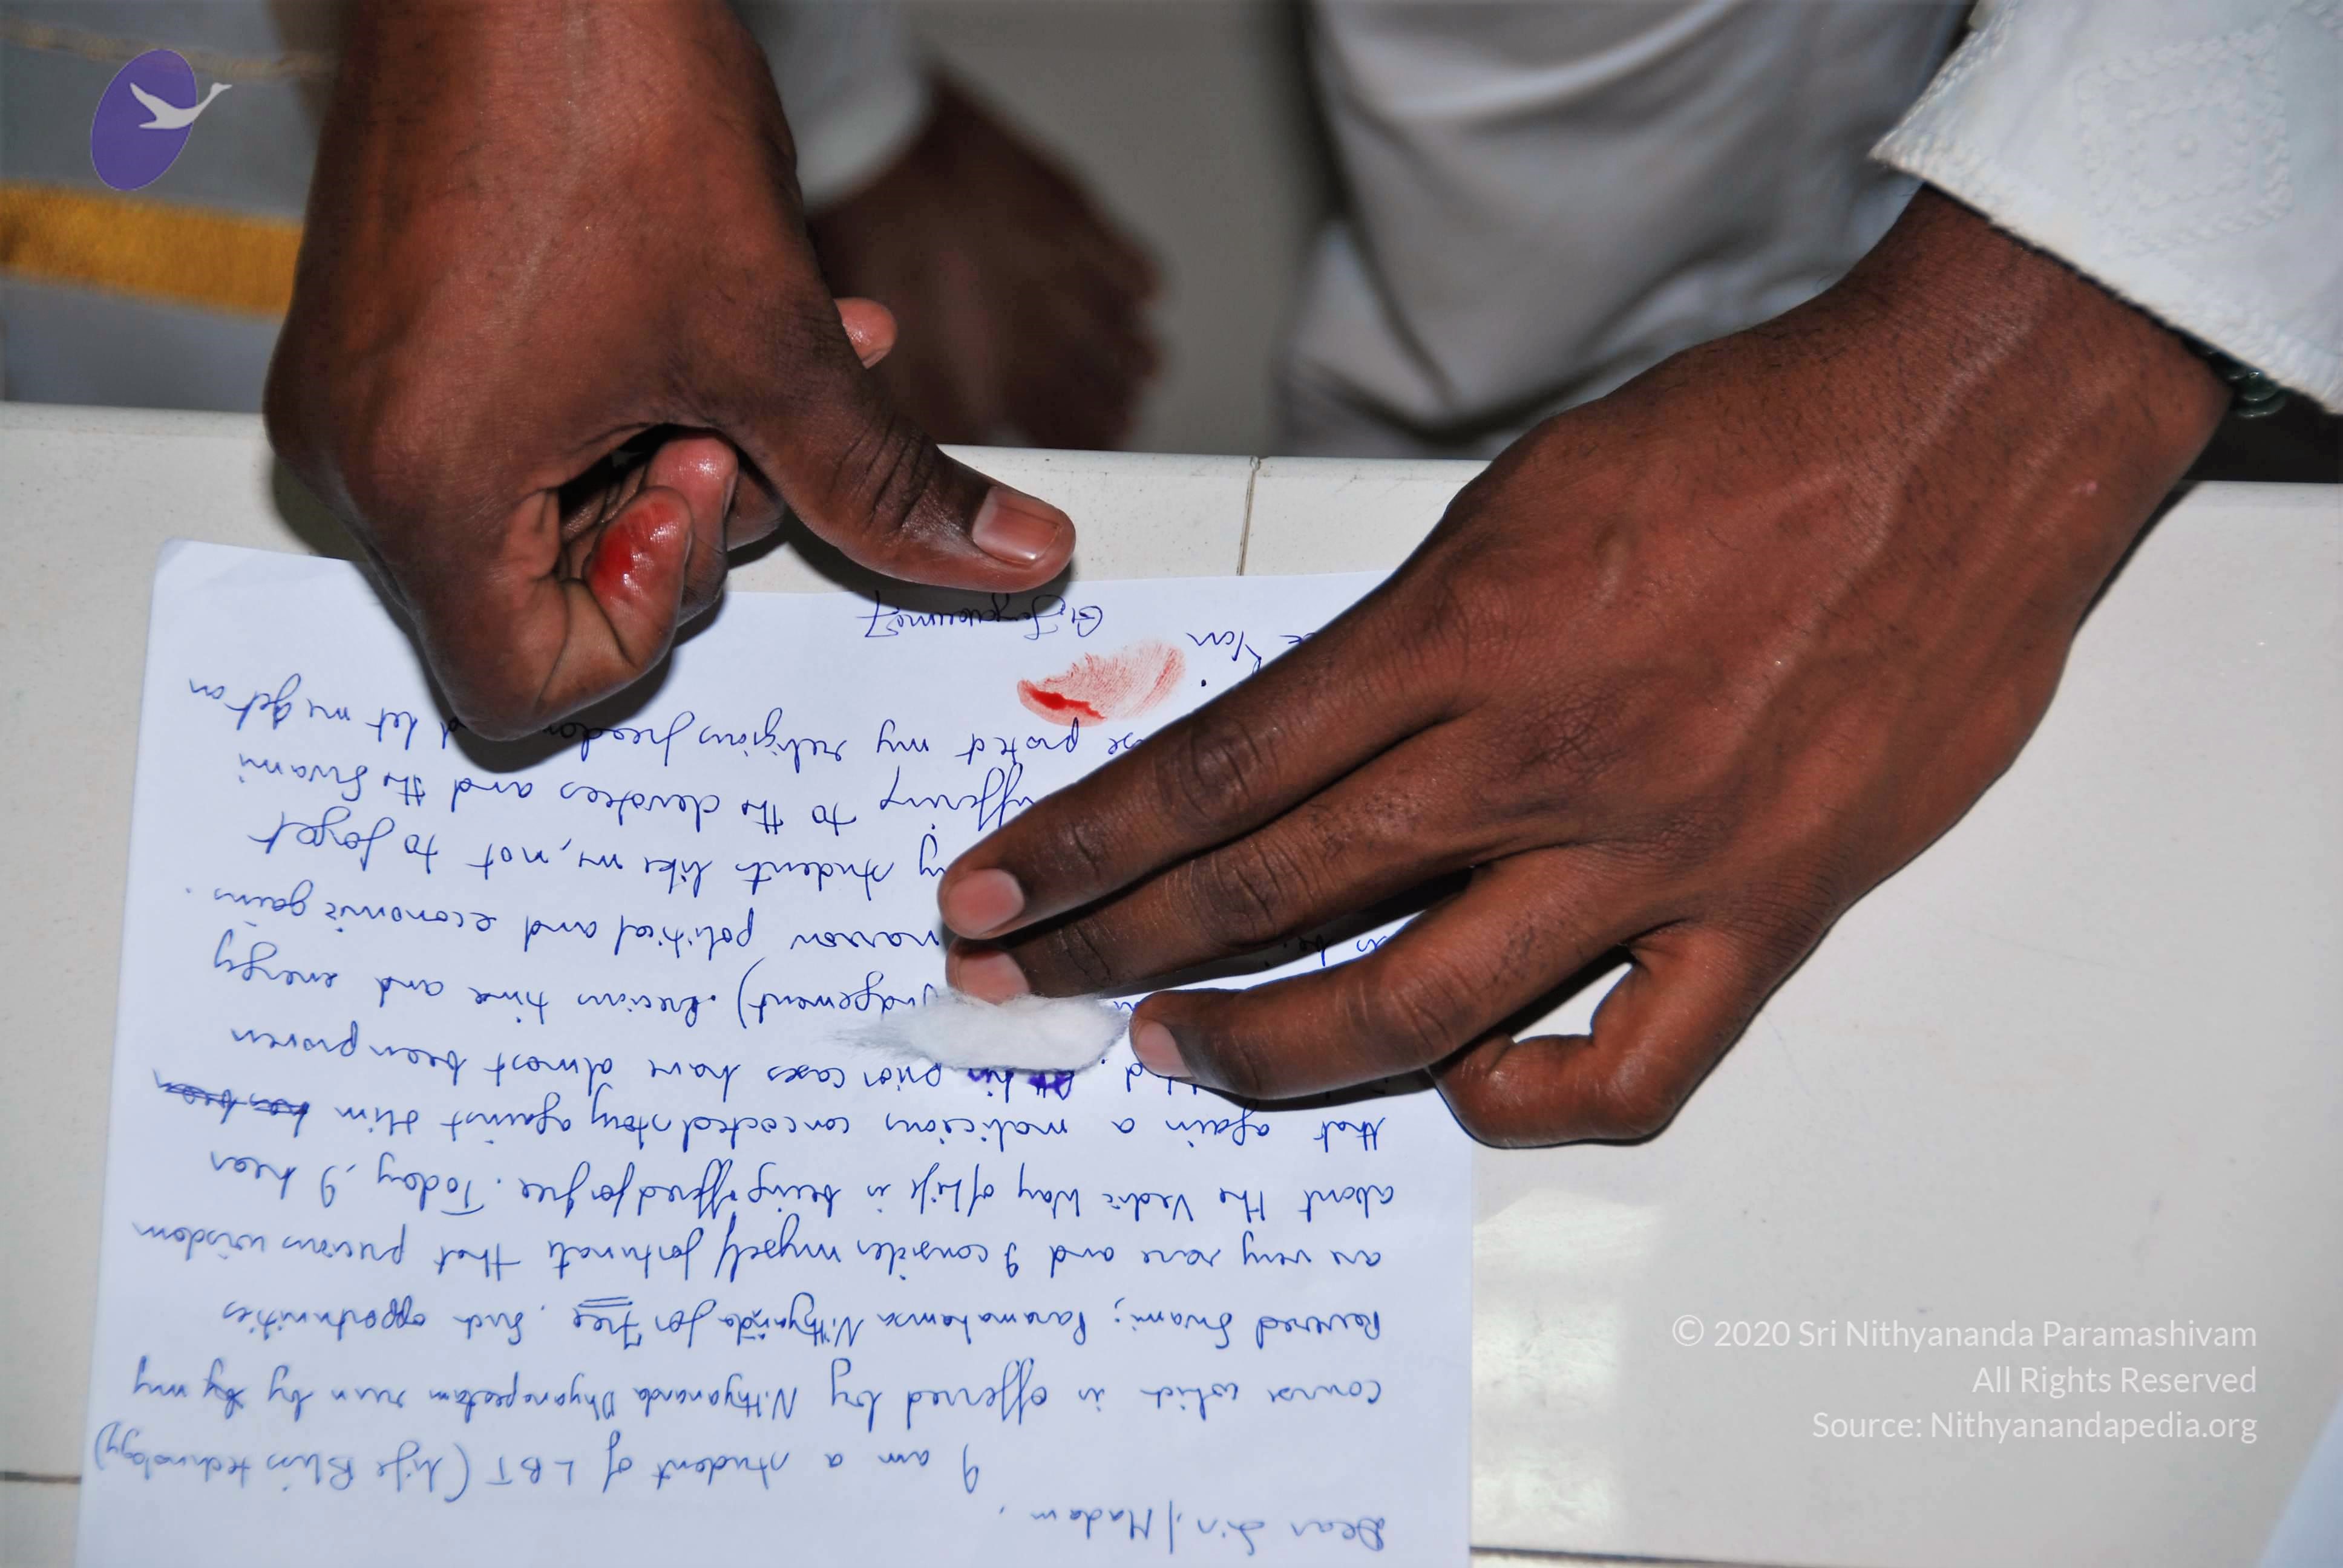 Dear Sir/Madam,
I am a student of LBT (Life Bliss technology)
course which is offered by Nithyananda Dhyanapeetam run by my
Revered Swami; Paramahamsa Nithyananda for Free. Such opportunities
are very rare and I consider myself fortunate that precious wisdom
about the Vedic Way of Life is being offered for free. Today, I hear
that again a malicious concocted story against Him
his prior cases have almost been proven
Precious time and energy
narrow political and economic gains.
students like me, not to forget
to the devotees and the Swami
protect my religious freedom let me get on
© 2020 Sri Nithyananda Paramashivam
All Rights Reserved
Source: Nithyanandapedia.org